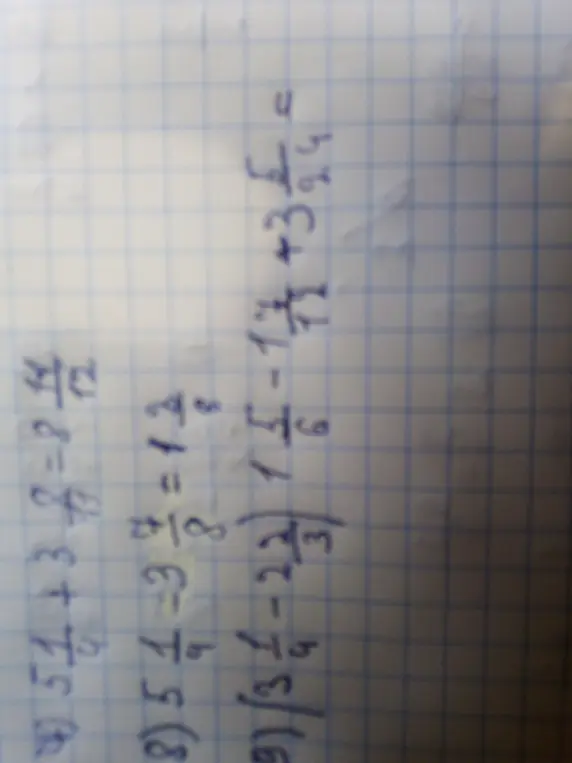 7) 5 1/4 + 3 = 8 11/12
8) 5 1/4 - 3 7/8 = 1 3/8
9) (3 1/4 - 2 2/3) 1 5/6 - 1 7/12 + 3 5/24 =